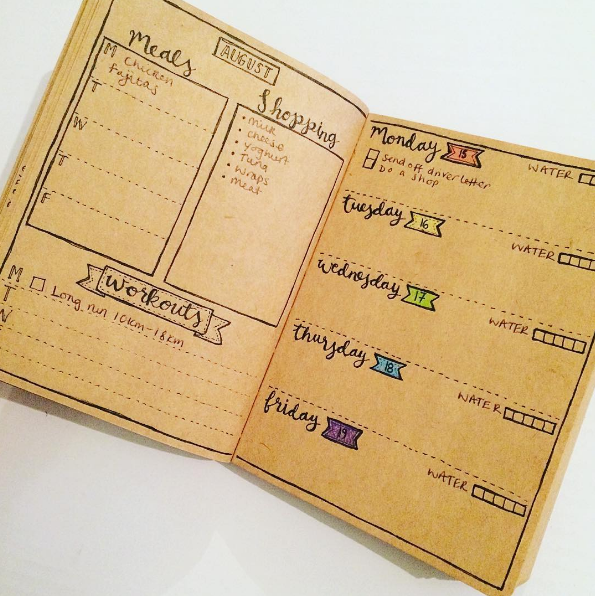 AUGUST
Meals
M Chicken
Fajitas
T
W
T
F
Shopping
• Milk
• Cheese
• Yoghurt
• Tuna
• Wraps
• Meat
Workouts
M Long run 10km-18km
T
W
Monday 15
WATER
Send off driver letter
Do a shop
tuesday 16
WATER
wednesday 17
WATER
thursday 18
WATER
friday 19
WATER